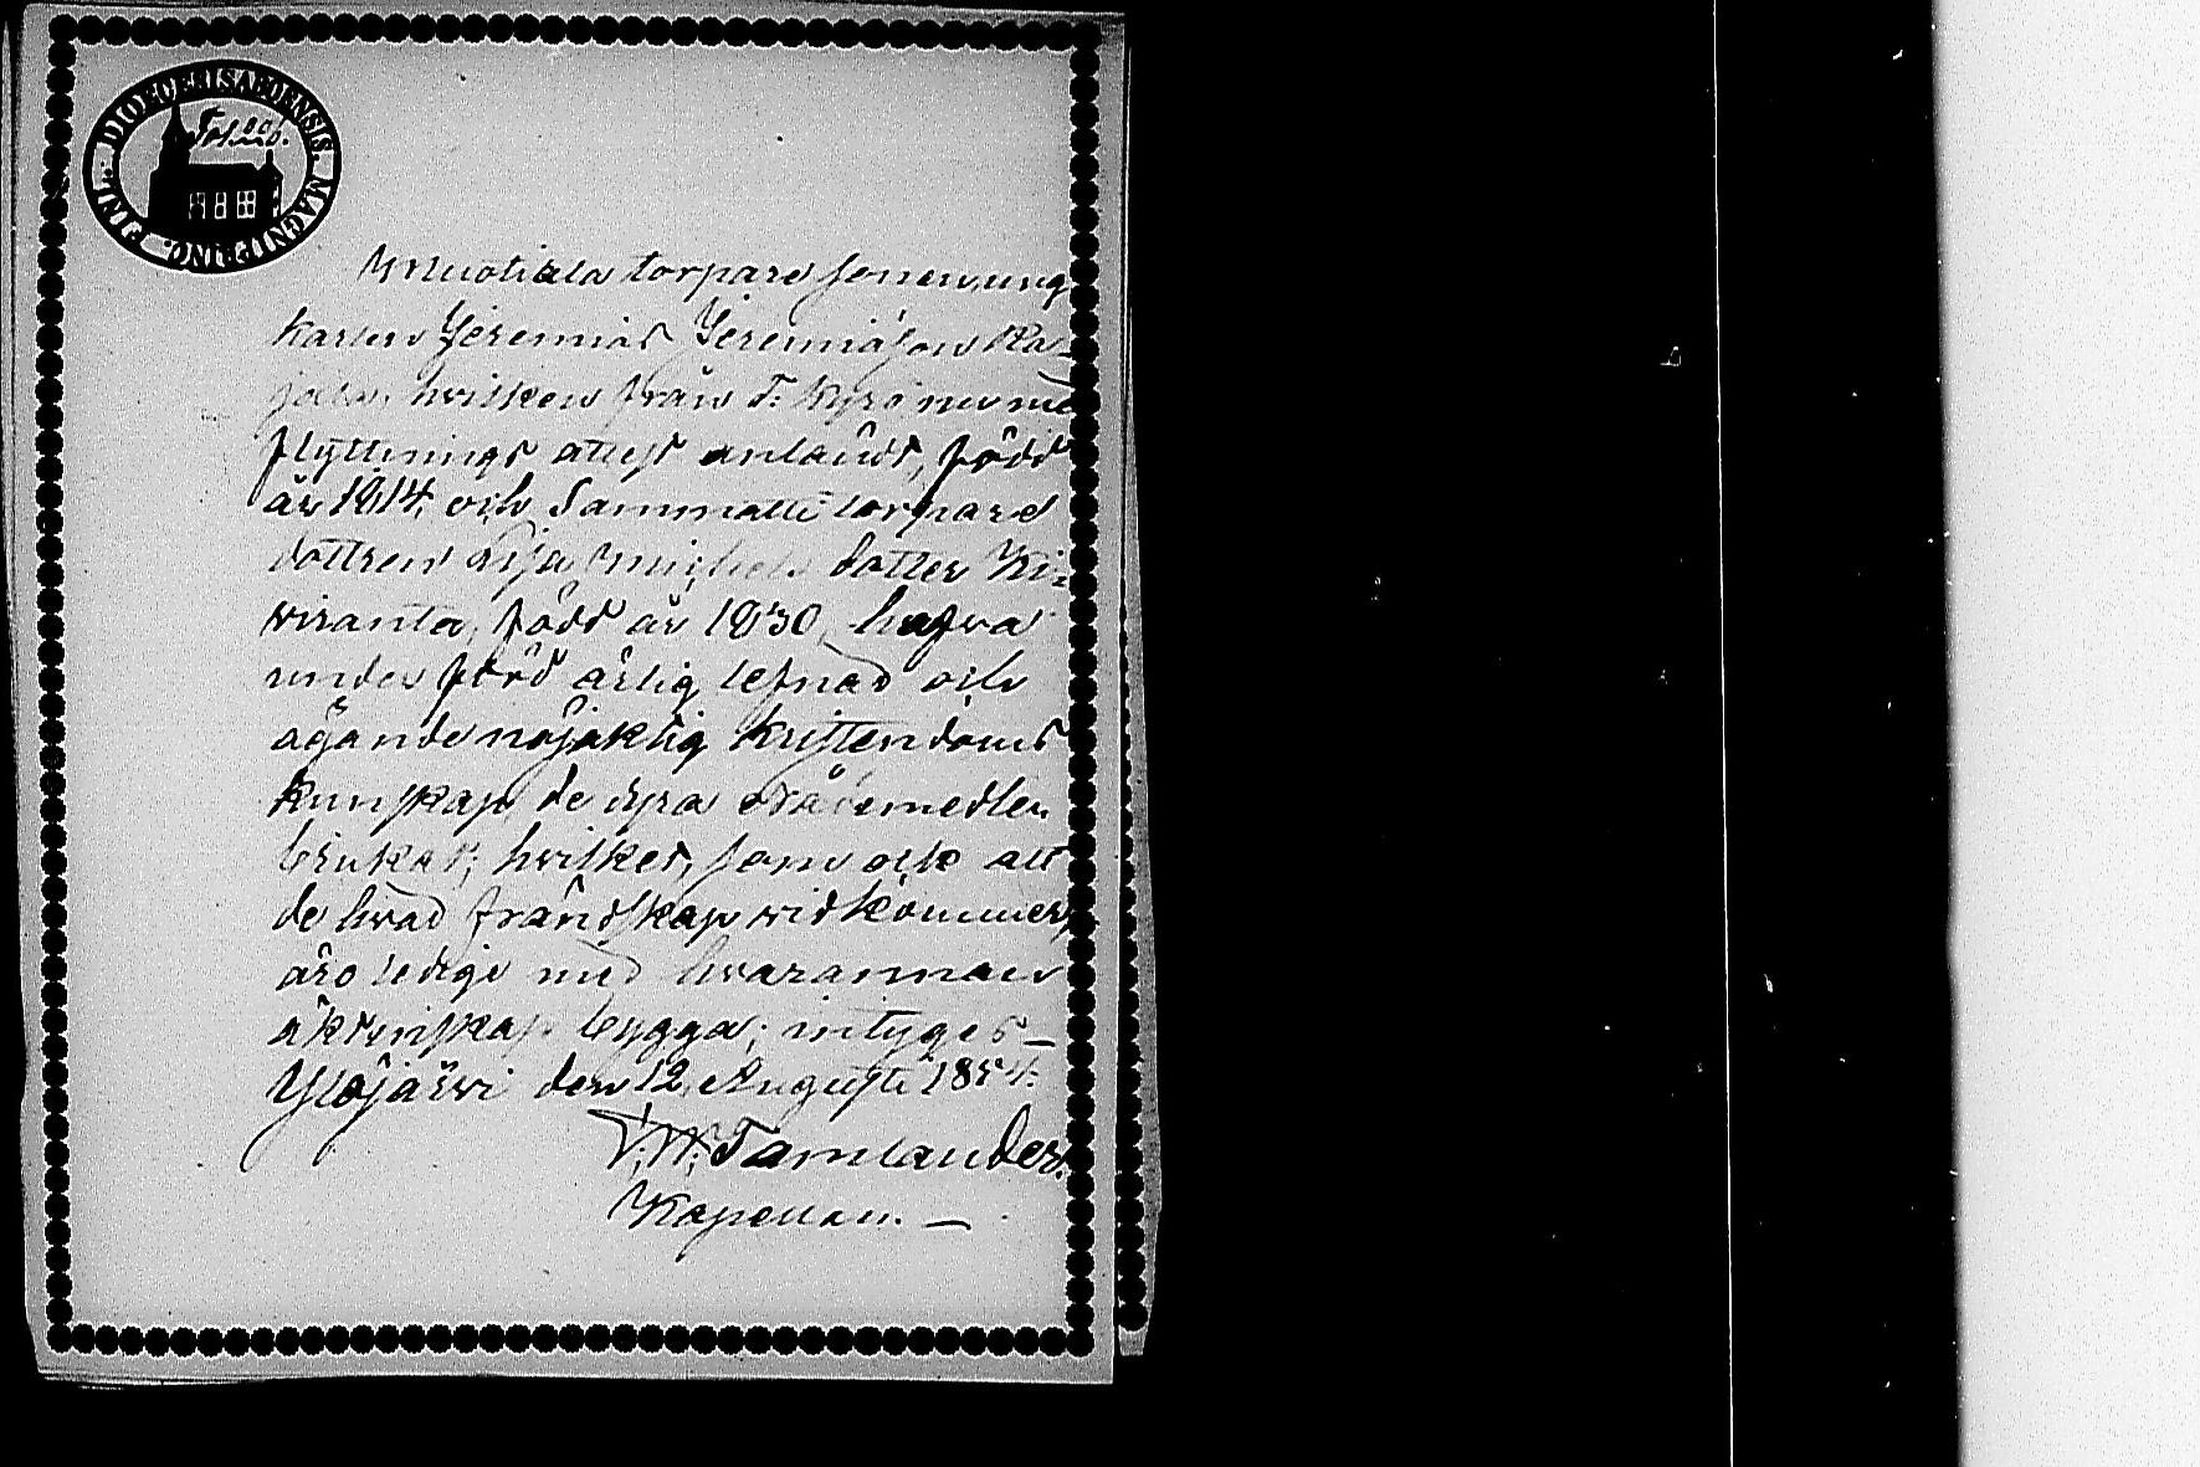 DIOECESIS ABOENSIS. MAGNI PRINC. FINL.
Fol. 226.
Mutiala torpare sonen, ung
karlen Jeremias Jeremiäson Ra-
jala, hvilken från T: Kyro nu med
flyttnings attest anländt, född
år 1814, och Sammatti torpare
dottren Lisa Michels dotter Ki-
viranta, född år 1830, hafva
under förd ärlig lefnad och
ägande nöjaktig kristendoms
kunskap de dyra nådemedlen
brukat; hvilket, som ock att
de hvad frändskap vidkommer,
äro ledige med hvarannan
äktenskap bygga; intyges_
Ylöjärvi den 12 Augusti 1854.
F. W. Tamlander.
Kapellan. _